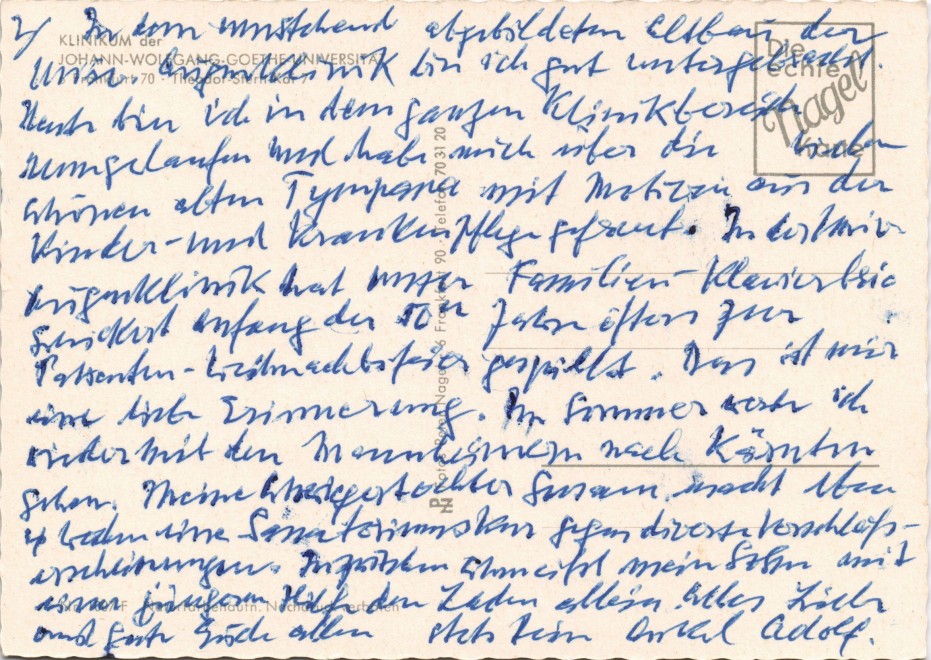 2/ In dem umstehend abgebildeten Altbau der
KLINIKUM der
JOHANN-WOLFGANG-GOETHE-UNIVERSITÄT
Frankfurt 70 · Theodor-Stern-Kai 7
Die
echte
Nagel
Karte
Univ. Augenklinik bin ich gut untergebracht.
Heute bin ich in dem ganzen Klinikbereich
rumgelaufen und habe mich über die vielen
schönen alten Tympana mit Motiven aus der
Kinder- und Krankenpflege gefreut. In der Univ.
Augenklinik hat unser Familien-Klaviertrio
Anfang der 50er Jahre öfters zur
Patienten-Weihnachtsfeier gespielt. Das ist mir
eine liebe Erinnerung. Im Sommer werde ich
wieder mit den Mannheimern nach Kärnten
gehen. Meine Schwiegertochter Susann macht eben
4 Wochen eine Sanatoriumskur gegen diverse Verschleiß-
erscheinungen. Inzwischen schmeißt mein Sohn mit
einer jüngeren Hilfe den Laden allein. Alles Liebe
und gute Euch allen stets Dein Onkel Adolf.
Nagel, 6 Frankfurt 90 · Telefon 70 31 20
Naturfarbenaufn. Nachdruck verboten